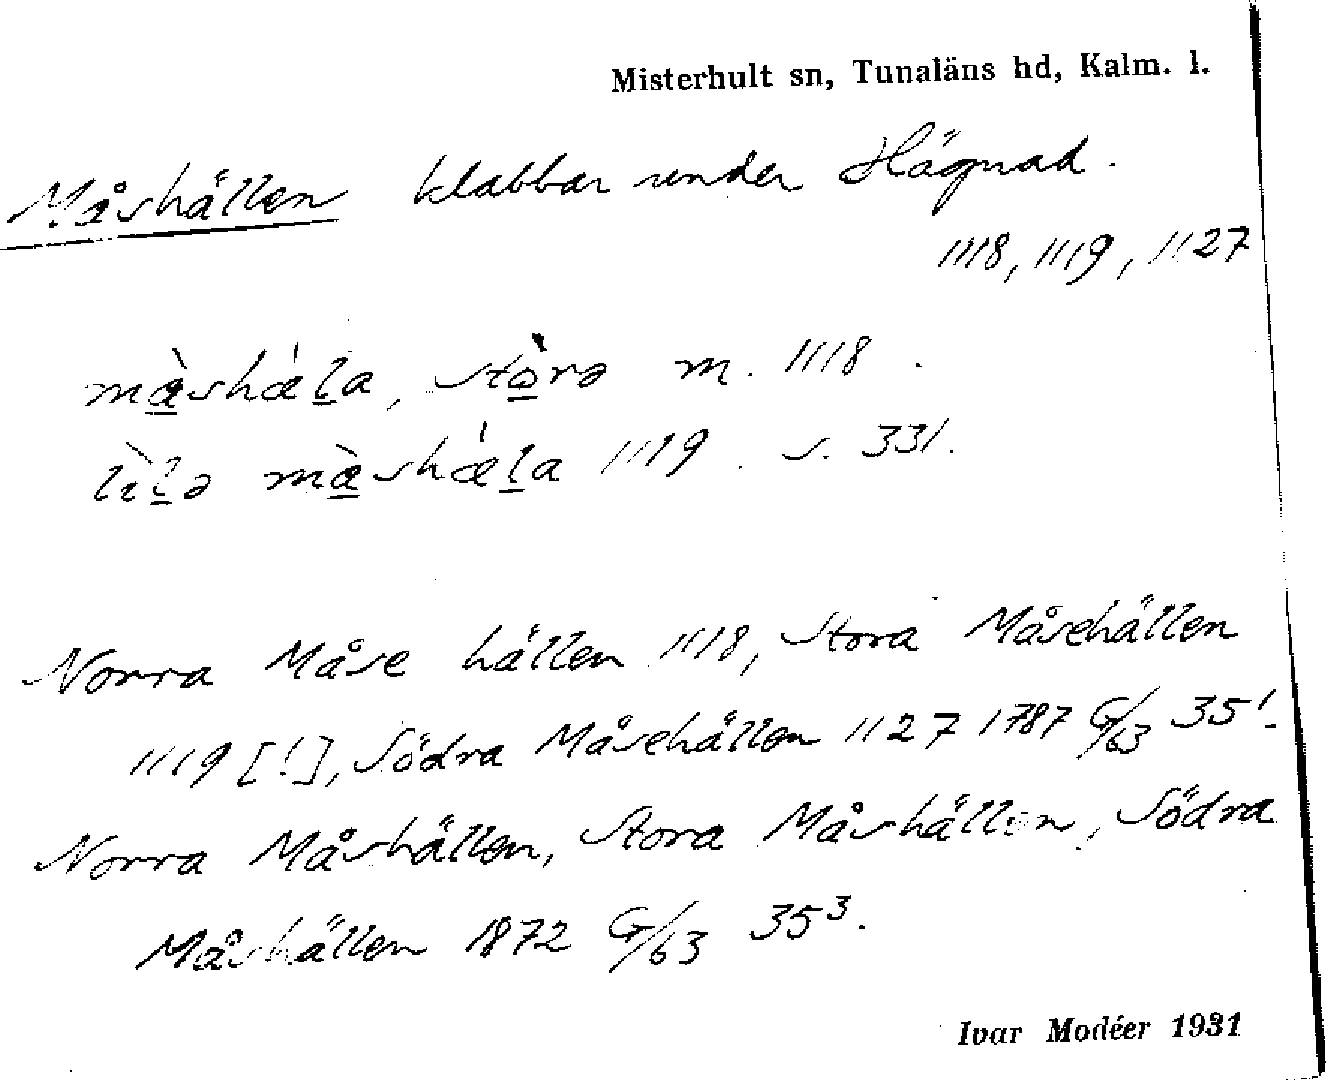 Misterhult sn, Tunaläns hd, Kalm. l.
Måshällen klabbar under Hägnad.
1118, 1119, 1127
mæ̀shæ̍la, stòrə m. 1118.
lìlə mæ̀shæ̍la 1119. s. 331.
Norra Måse hällen 1118, Stora Måsehällen
1119 [!], Södra Måsehällen 1127 1787 G/63 35¹.
Norra Måshällen, Stora Måshällen, Södra
Måshällen 1872 G/63 35³.
Ivar Modéer 1931